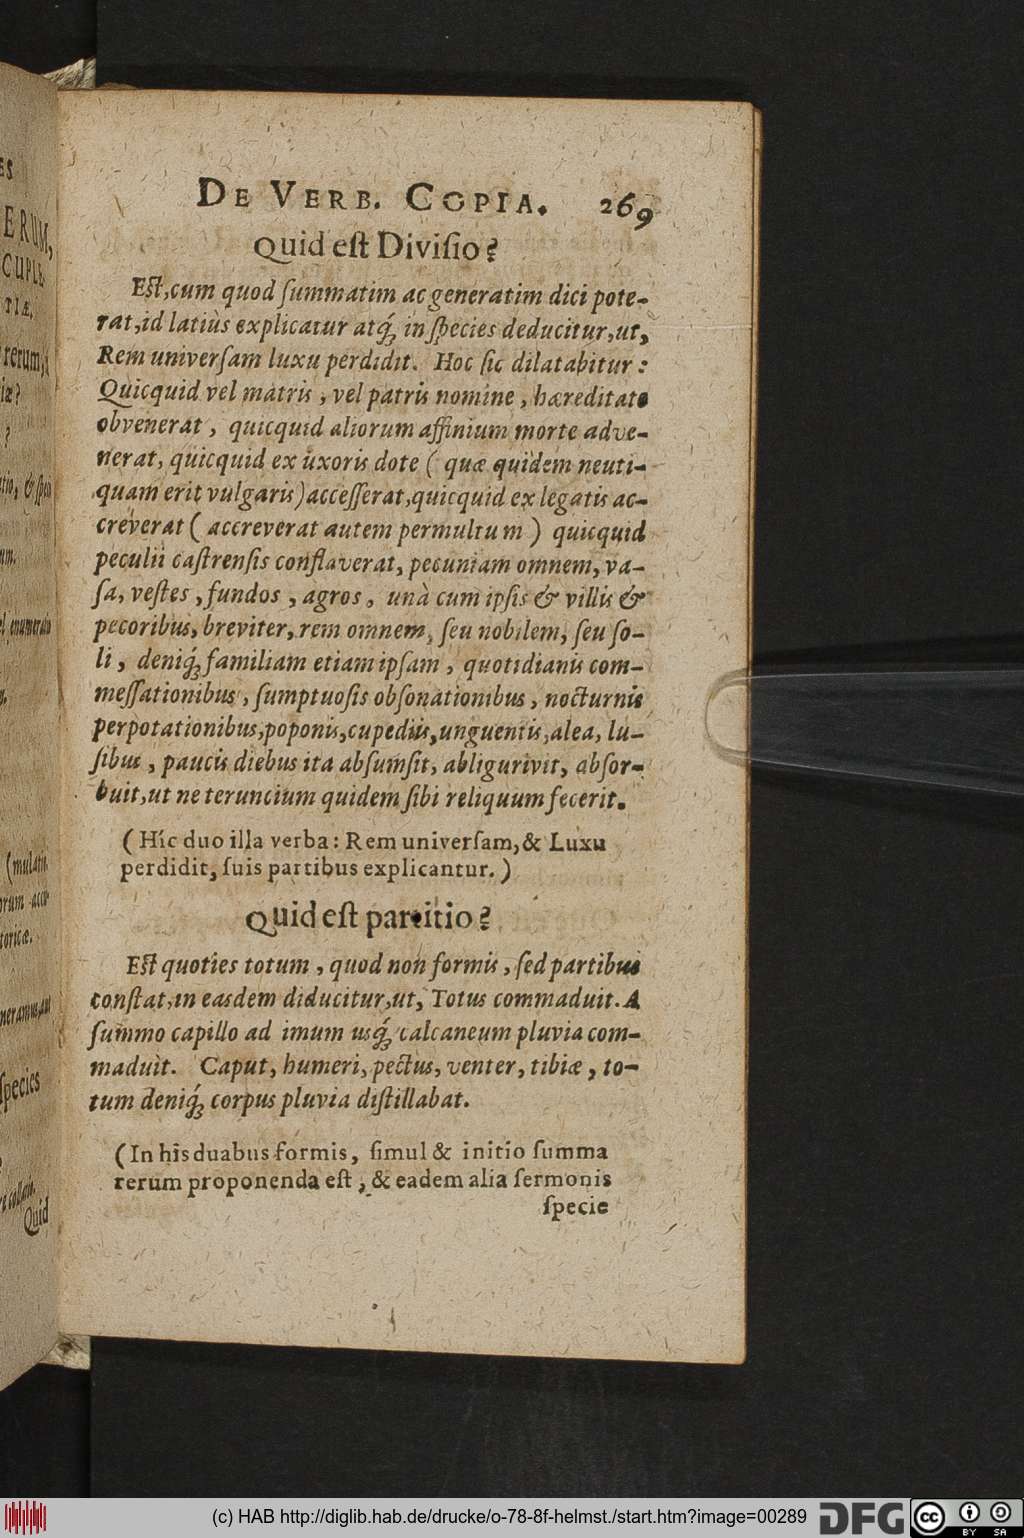 DE VERB. COPIA. 269
Quid eſt Diviſio?
Eſt, cum quod ſummatim ac generatim dici pote-
rat, id latiùs explicatur atq́; in ſpecies deducitur, ut,
Rem univerſam luxu perdidit. Hoc ſic dilatabitur:
Quicquid vel matris, vel patris nomine, hæreditate
obvenerat, quicquid aliorum affinium morte adve-
nerat, quicquid ex uxoris dote (quæ quidem neuti-
quam erit vulgaris) acceſſerat, quicquid ex legatis ac-
creverat (accreverat autem permultum) quicquid
peculii caſtrenſis conflaverat, pecuniam omnem, va-
ſa, veſtes, fundos, agros, unà cum ipſis & villis &
pecoribus, breviter, rem omnem, ſeu nobilem, ſeu ſo-
li, deniq́; familiam etiam ipſam, quotidianis com-
meſſationibus, ſumptuoſis obſonationibus, nocturnis
perpotationibus, poponis, cupediis, unguentis, alea, lu-
ſibus, paucis diebus ita abſumſit, abligurivit, abſor-
buit, ut ne teruncium quidem ſibi reliquum fecerit.
(Hîc duo illa verba: Rem univerſam, & Luxu
perdidit, ſuis partibus explicantur.)
Quid eſt partitio?
Eſt quoties totum, quod non formis, ſed partibus
conſtat, in easdem diducitur, ut, Totus commaduit. A
ſummo capillo ad imum usq́; calcaneum pluvia com-
maduit. Caput, humeri, pectus, venter, tibiæ, to-
tum deniq́; corpus pluvia diſtillabat.
(In hîs duabus formis, ſimul & initio ſumma
rerum proponenda eſt, & eadem alia ſermonis
ſpecie
ES
ERUM,
TIÆ.
rerum,
iæ?
?
enumeratio
(mutatis
toricæ.
ſpecies
Quid
(c) HAB http://diglib.hab.de/drucke/o-78-8f-helmst./start.htm?image=00289
DFG
cc
BY SA